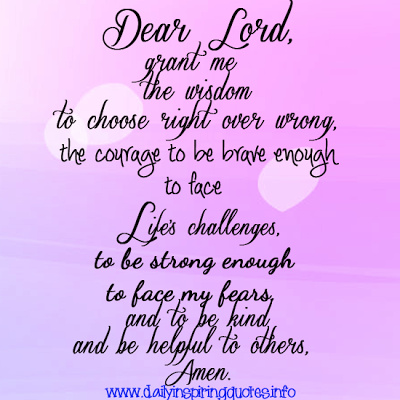 Dear Lord,
grant me
the wisdom
to choose right over wrong,
the courage to be brave enough
to face
Life's challenges,
to be strong enough
to face my fears,
and to be kind,
and be helpful to others,
Amen.
www.dailyinspiringquotes.info